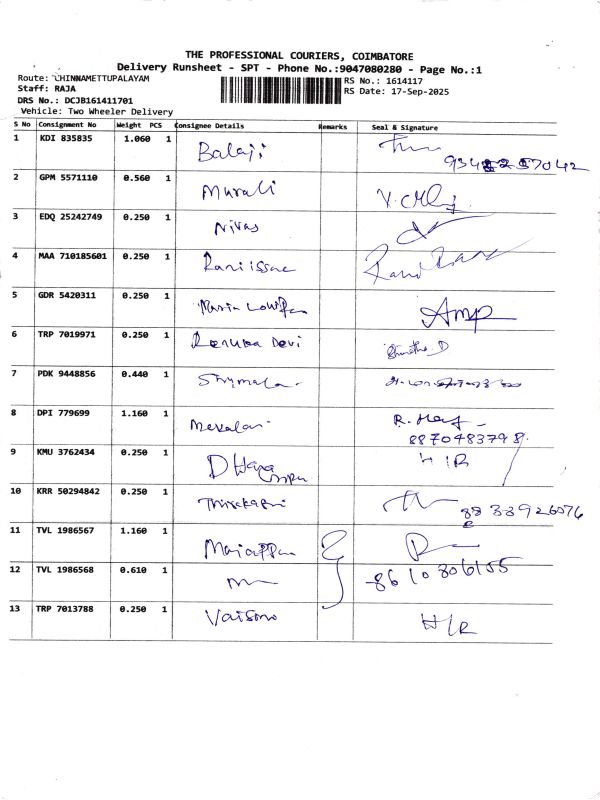 THE PROFESSIONAL COURIERS, COIMBATORE
Delivery Runsheet - SPT - Phone No.:9047080280 - Page No.:1
Route: CHINNAMETTUPALAYAM RS No.: 1614117
Staff: RAJA RS Date: 17-Sep-2025
DRS No.: DCJB161411701
Vehicle: Two Wheeler Delivery
S No Consignment No Weight PCS Consignee Details Remarks Seal & Signature
1 KDI 835835 1.060 1 Balaji
2 GPM 5571110 0.560 1 Murali
3 EDQ 25242749 0.250 1 Nivas
4 MAA 710185601 0.250 1 Rani issac Rani
5 GDR 5420311 0.250 1 Maria AMP
6 TRP 7019971 0.250 1 Renuka Devi
7 PDK 9448856 0.440 1 Shymala
8 DPI 779699 1.160 1 Mekalai R.
8870483798
9 KMU 3762434 0.250 1 H I R
10 KRR 50294842 0.250 1 8833926076
11 TVL 1986567 1.160 1 Mariappan
12 TVL 1986568 0.610 1 8610806155
13 TRP 7013788 0.250 1 H I R